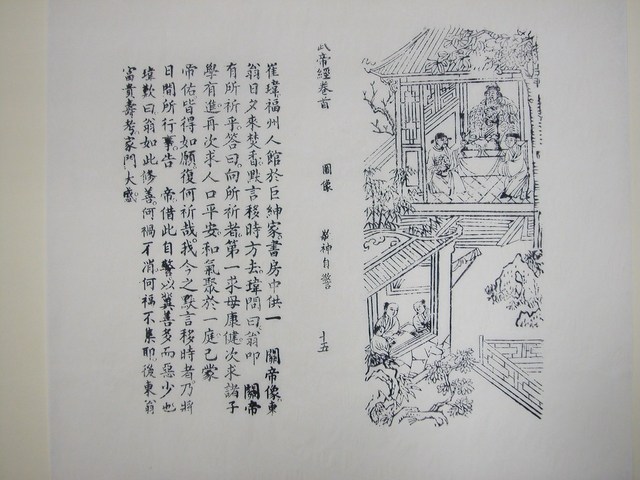 帝經卷首 圖像 神自警 十五
崔瑋福州人館於巨紳家書房中供一 關帝像東
翁日夕來焚香默言移時方去瑋問曰翁叩 關帝
有所祈乎答曰向所祈者第一求母康健次求諸子
學有進再次求人口平安和氣聚於一庭已蒙
帝佑皆得如願復何祈哉我今之默言移時者乃將
日間所行事告 帝借此自警以冀善多而惡少也
瑋歎曰翁如此修善何禍不消何福不集耶後東翁
富貴壽考家門大盛